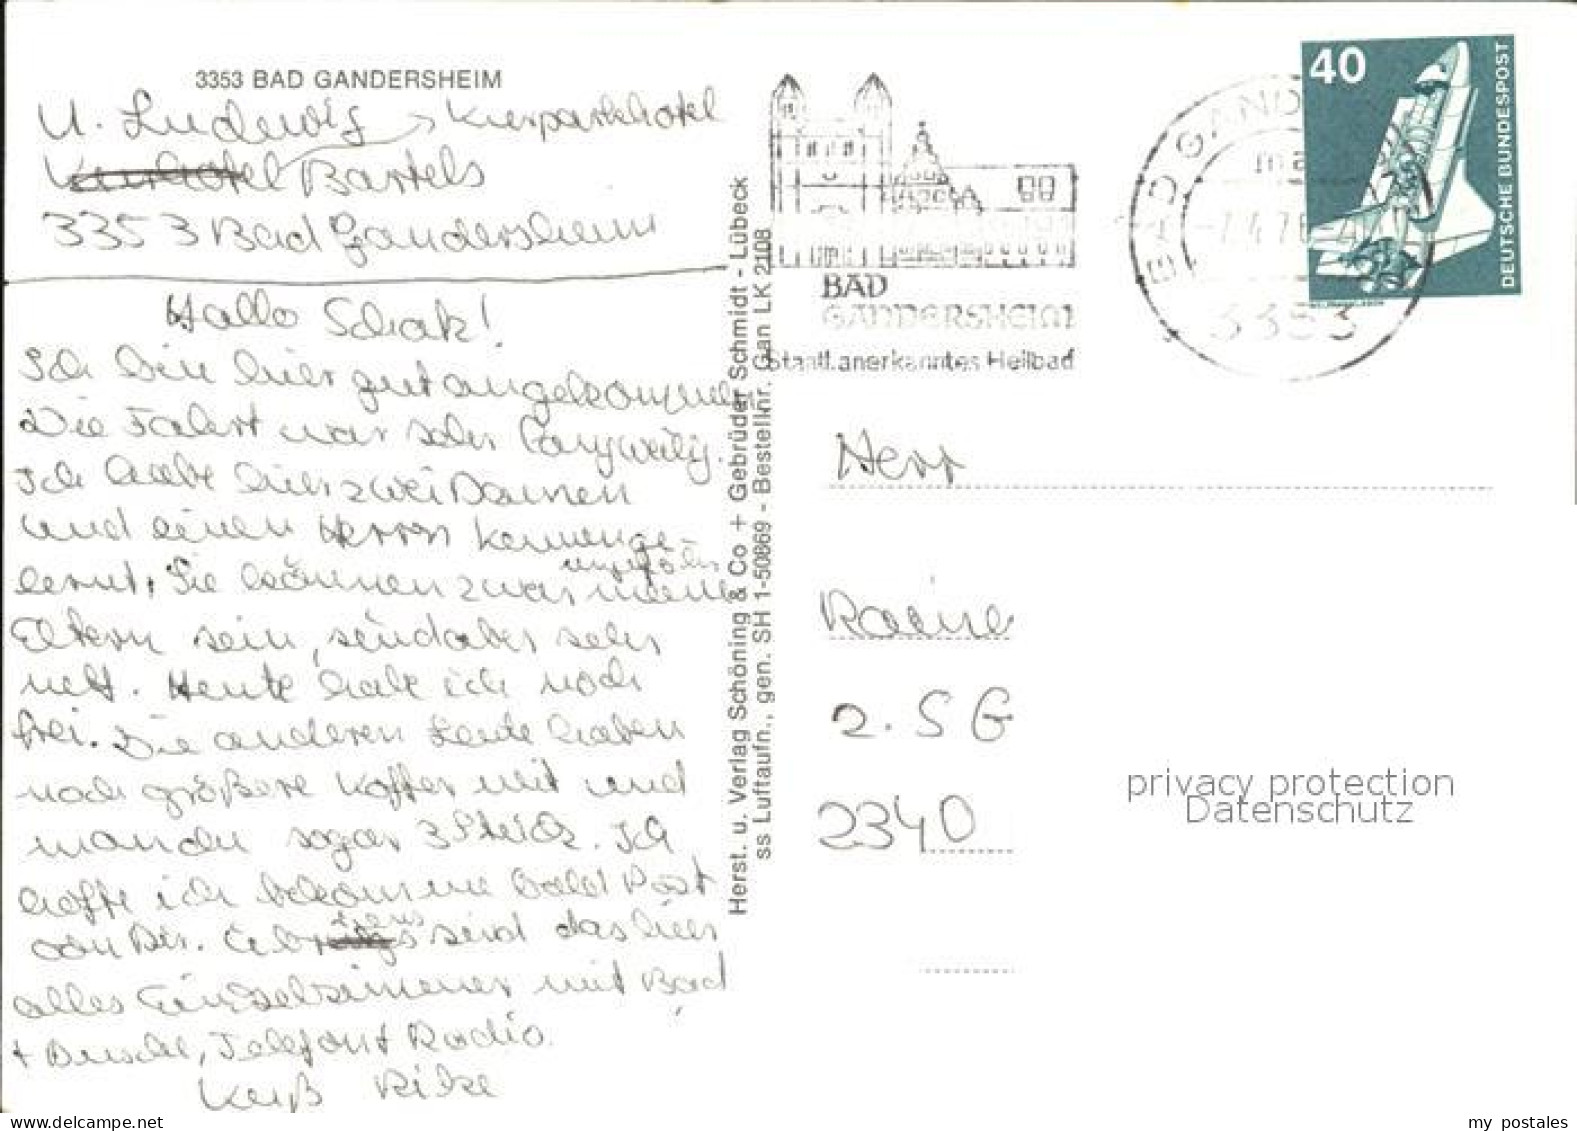 3353 BAD GANDERSHEIM
U. Ludewig → Kurparkhotel
Kurhotel Bartels
3353 Bad Gandersheim
Hallo Schatz!
Ich bin hier gut angekommen
Die Fahrt war sehr langweilig.
Ich habe hier zwei Damen
und einen Herrn kennenge-
lernt, Sie können zwar ungefähr meine
Eltern sein, sind aber sehr
nett. Heute habe ich noch
frei. Die anderen Leute haben
noch größere Koffer mit und
manche sogar 3 Stück. Ich
hoffe ich bekomme bald Post
von Dir. Übrigens sind das hier
alles Einzelzimmer mit Bad
+ Dusche, Telefon + Radio.
Kuß Rike
Herst. u. Verlag Schöning & Co + Gebrüder Schmidt - Lübeck
ss Luftaufn., gen. SH 1-50869 - Bestellnr. Gan LK 2108
BAD
GANDERSHEIM
Staatl. anerkanntes Heilbad
BAD GAND
-7.4.76
3353
40
DEUTSCHE BUNDESPOST
Herr
Raine
2. SG
2340
privacy protection
Datenschutz
www.delcampe.net
my_postales